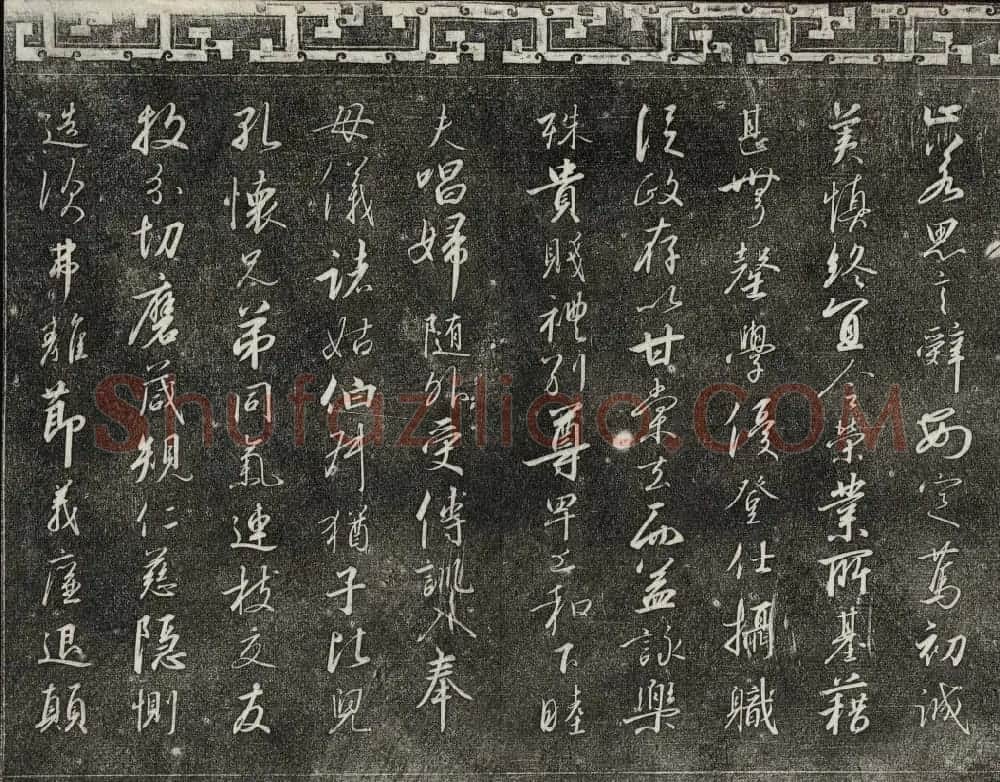 止若思言辭安定篤初誠
美慎終宜令榮業所基藉
甚無罄學優登仕攝職
從政存以甘棠去而益詠樂
殊貴賤禮別尊卑上和下睦
夫唱婦隨外受傅訓入奉
母儀諸姑伯叔猶子比兒
孔懷兄弟同氣連枝交友
投分切磨箴規仁慈隱惻
造次弗離節義廉退顛
Shufaziliao.COM